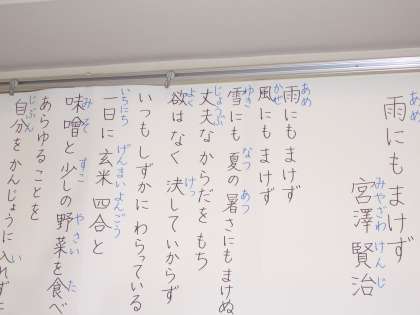 あめ
雨にもまけず
みやざわ けんじ
宮澤 賢治
あめ
雨にもまけず
かぜ
風にもまけず
ゆき なつ あつ
雪にも夏の暑さにもまけぬ
じょうぶ
丈夫なからだをもち
よく けっ
欲はなく 決していからず
いつもしずかにわらっている
いちにち げんまい よんごう
一日に玄米四合と
みそ すこ やさい た
味噌と少しの野菜を食べ
あらゆることを
じぶん い
自分をかんじょうに入れずに